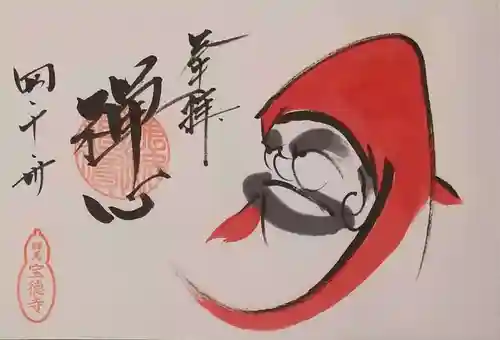 奉拝
禅心
四・十・
群馬
宝徳寺